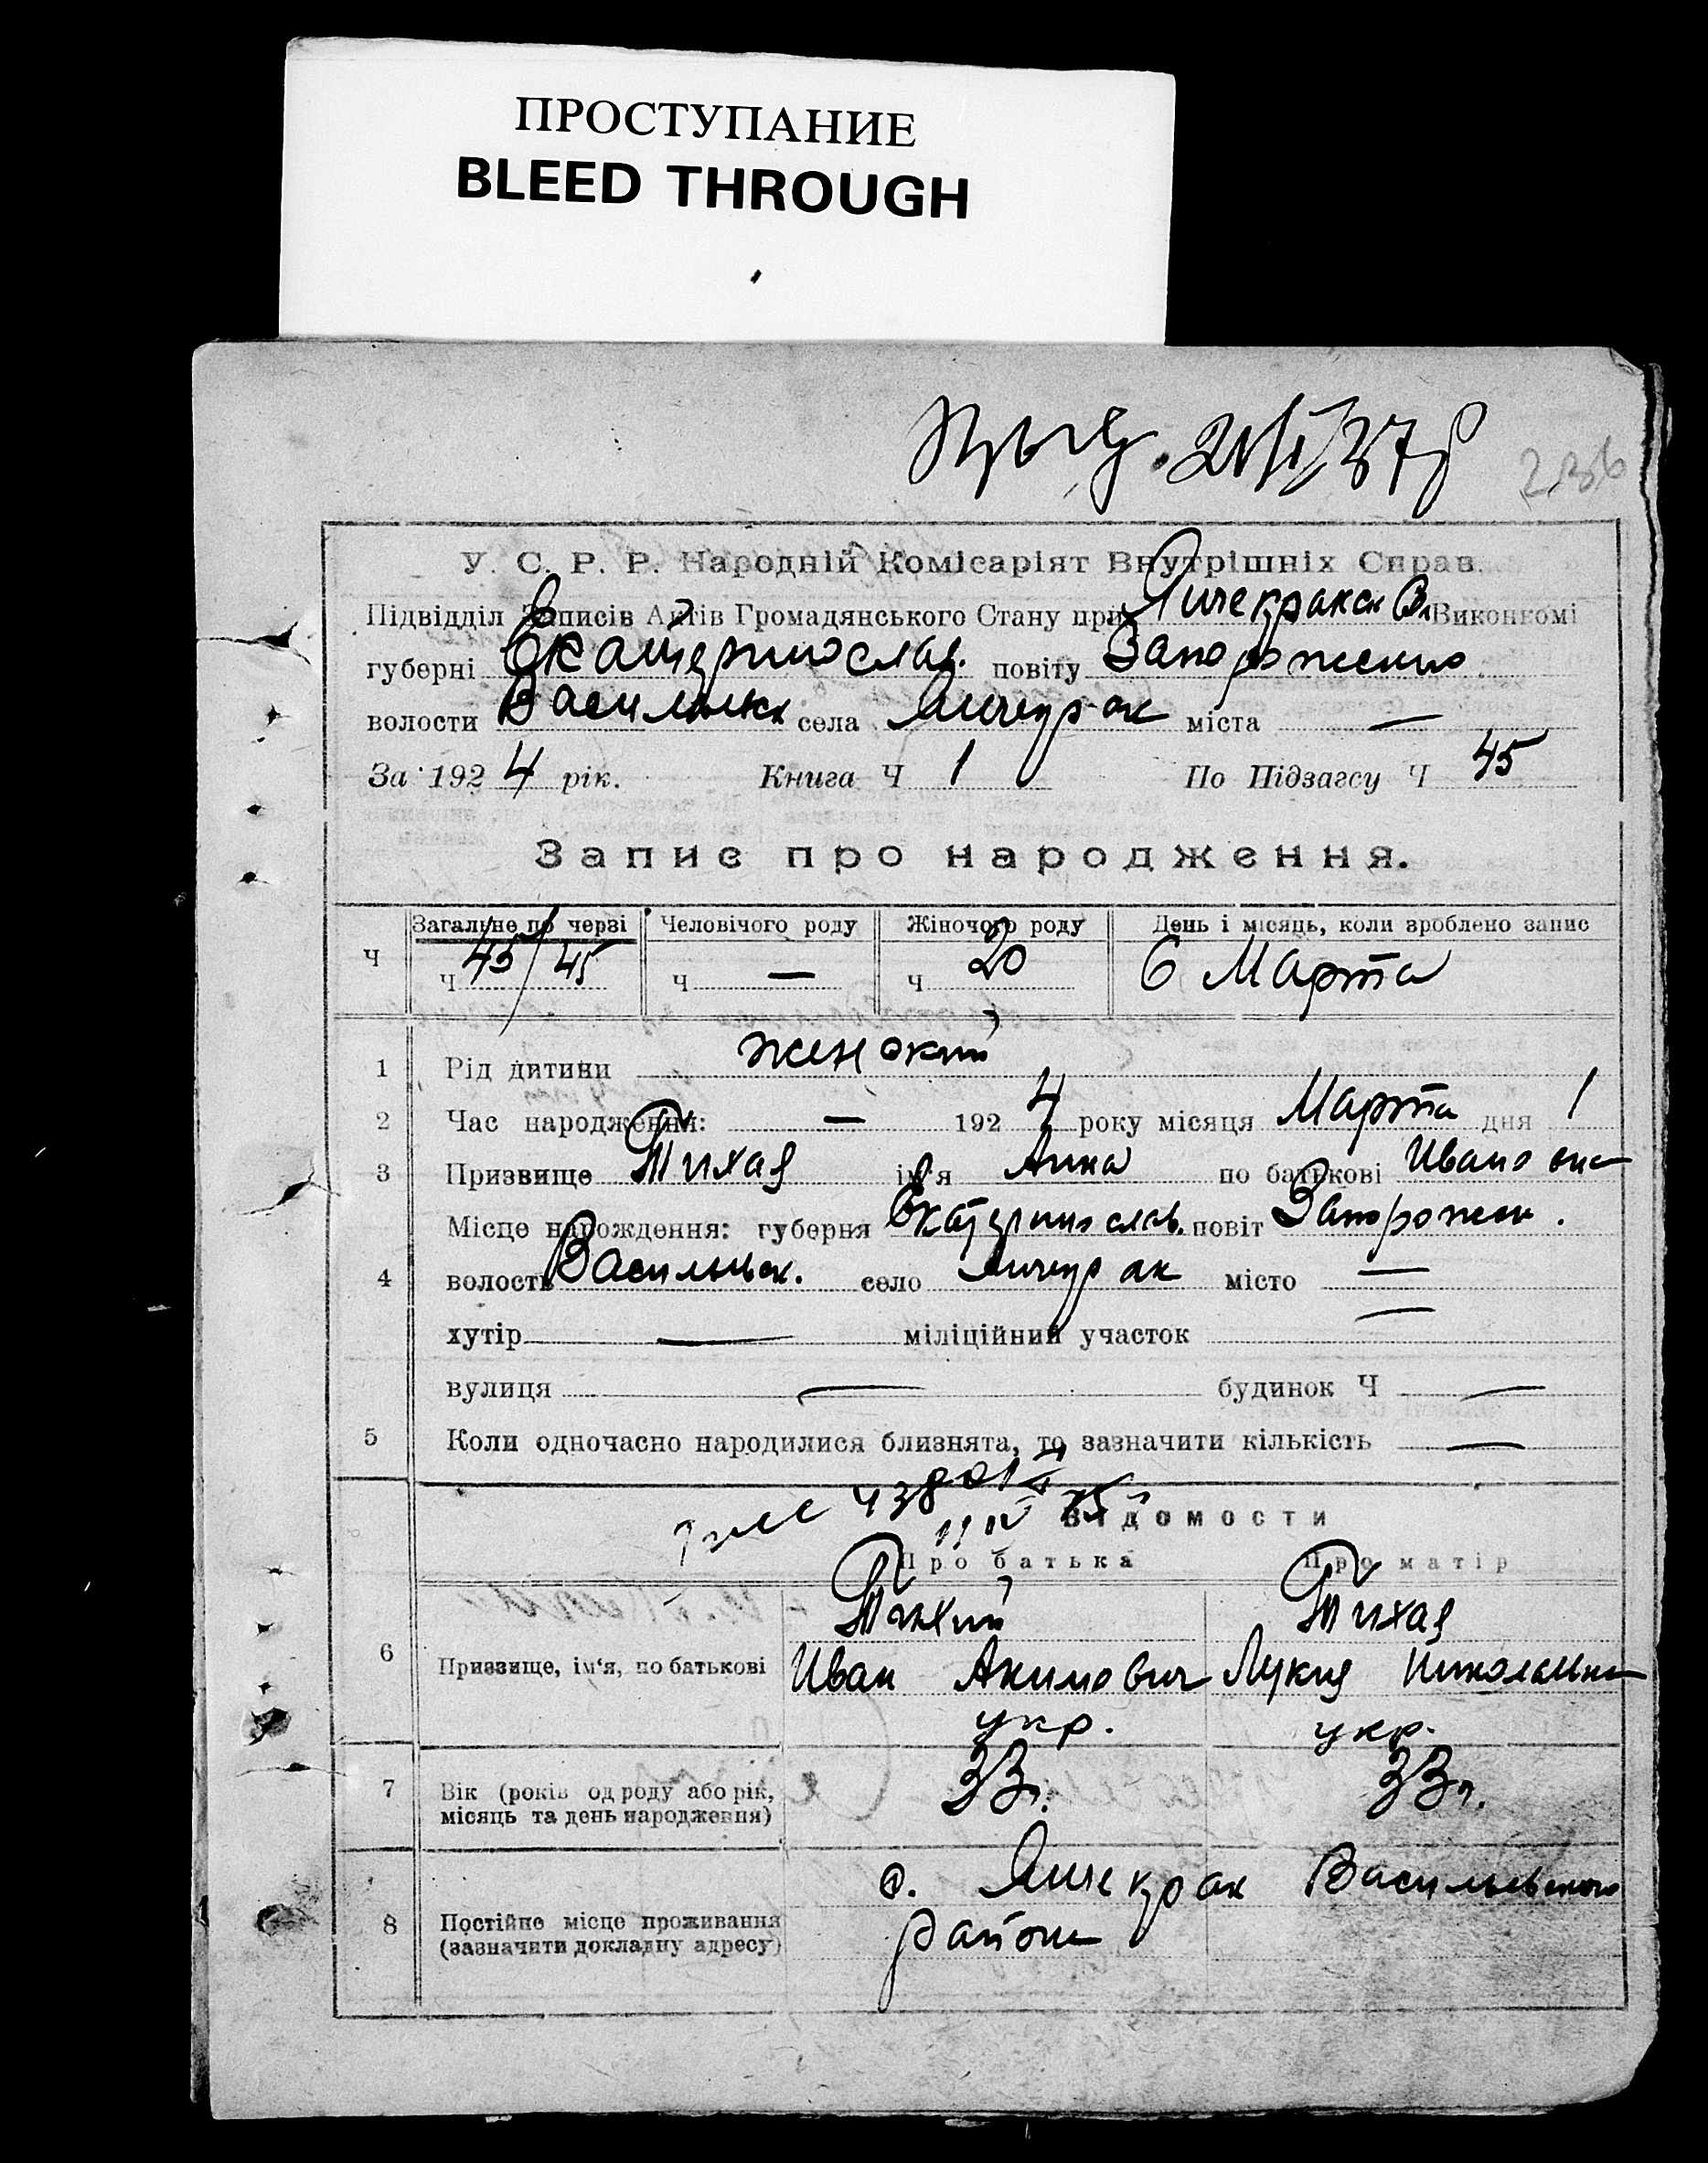 ПРОСТУПАНИЕ
BLEED THROUGH
236
У. С. Р. Р. Народній Комісаріят Внутрішніх Справ.
Підвідділ Записів Актів Громадянського Стану при Янчекракск Виконкомі
губерні Екатеринослав. повіту Запорожского
волости Васильевск села Янчекрак міста —
За 1924 рік. Книга Ч 1 По Підзагсу Ч 45
Запис про народження.
Ч Загальне по черзі Человічого роду Жіночого роду День і місяць, коли зроблено запис
Ч 45/45 Ч — Ч 20 6 Марта
1 Рід дитини женский
2 Час народження: — 1924 року місяця Марта дня 1
3 Призвище Тихая ім'я Анна по батькові Ивановна
Місце нарождення: губерня Екатеринослав. повіт Запорожск.
4 волость Васильевск. село Янчекрак місто —
хутір — міліційний участок —
вулиця — будинок Ч —
5 Коли одночасно народилися близнята, то зазначити кількість —
Відомости
Про батька Про матір
Тихий Тихая
6 Призвище, ім'я, по батькові Иван Акимович Лукия Николаевна
укр. укр.
7 Вік (років од роду або рік, місяць та день народження) 33 г. 33 г.
8 Постійне місце проживання (зазначити докладну адресу) с. Янчекрак Васильевского
района